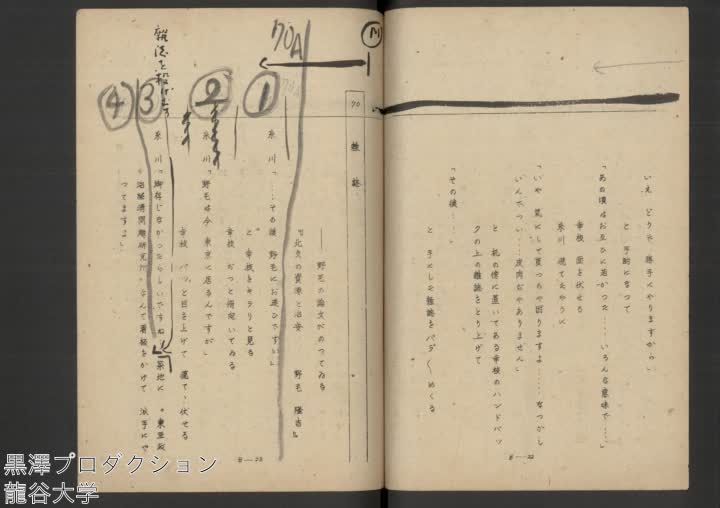 いえ どうぞ 勝手にやりますから」
と 事務になつて
「あの頃はお互ひに若かつた‥‥いろんな意味で‥‥」
幸枝 面を伏せる
糸川 慌てたやうに
「いや 気にして貰つちや困りますよ‥‥なつかし
いんでつい‥‥皮肉ぢやありません」
と 机の傍に置いてある幸枝のハンドバッ
クの上の雑誌をとり上げて
「その後‥‥」
と 手にした雑誌をパラ〱めくる
B—22
70
雑誌
——野毛の論文がのつてゐる
『北支の資源と治安 野毛 隆吉』
糸川「‥‥その後 野毛にお逢ひですか」
と 幸枝をキラリと見る
幸枝 ぢつと俯向いてゐる
糸川「野毛は今 東京に居るんですが」
幸枝 パッと目を上げて 慌てゝ伏せる
糸川「御存じなかつたらしいですね
つてますよ」
B—23
70A
①
②
③
④
黒澤プロダクション
龍谷大学